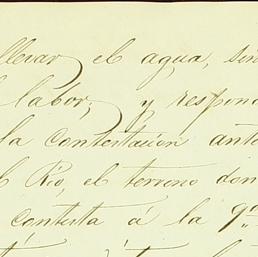 llevar el agua, sin
labor, y respon
la contestación ante
Rio, el terreno don
contesta á la 9ª